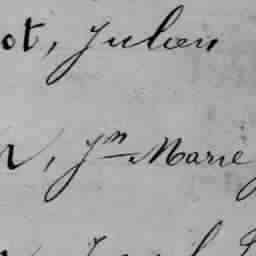 ot, Julien
, Jn Marie